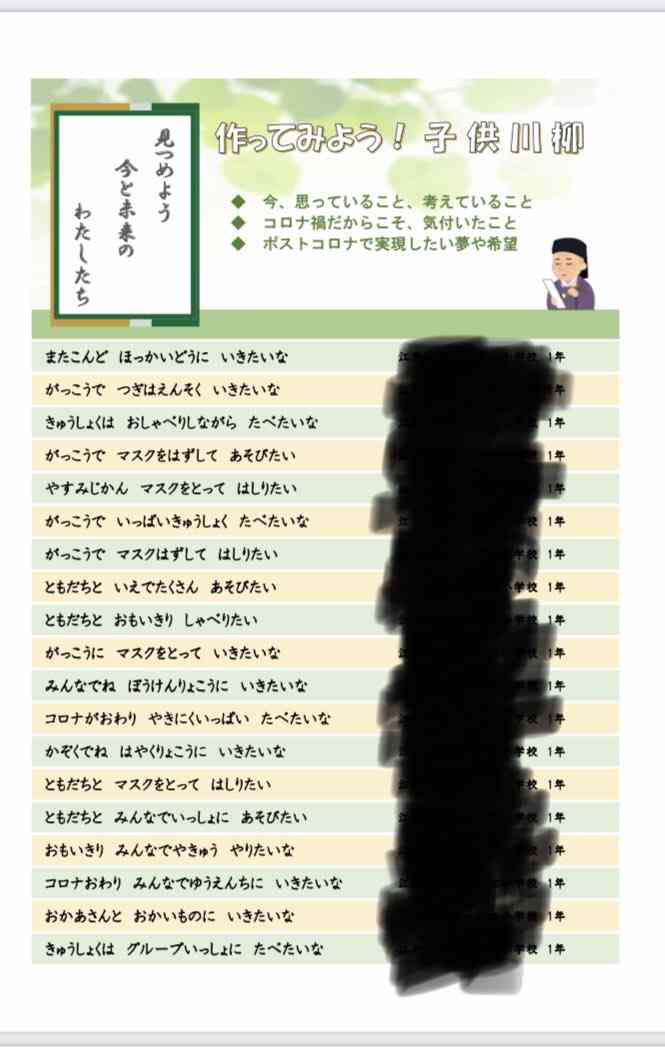 見つめよう
今と未来の
わたしたち
作ってみよう！子供川柳
◆ 今、思っていること、考えていること
◆ コロナ禍だからこそ、気付いたこと
◆ ポストコロナで実現したい夢や希望
またこんど ほっかいどうに いきたいな 学校 1年
がっこうで つぎはえんそく いきたいな 年
きゅうしょくは おしゃべりしながら たべたいな 1年
がっこうで マスクをはずして あそびたい 1年
やすみじかん マスクをとって はしりたい 1年
がっこうで いっぱいきゅうしょく たべたいな 校 1年
がっこうで マスクはずして はしりたい 学校 1年
ともだちと いえでたくさん あそびたい 学校 1年
ともだちと おもいきり しゃべりたい 学校 1年
がっこうに マスクをとって いきたいな 校 1年
みんなでね ぼうけんりょこうに いきたいな 校 1年
コロナがおわり やきにくいっぱい たべたいな 校 1年
かぞくでね はやくりょこうに いきたいな 学校 1年
ともだちと マスクをとって はしりたい 校 1年
ともだちと みんなでいっしょに あそびたい 校 1年
おもいきり みんなでやきゅう やりたいな 校 1年
コロナおわり みんなでゆうえんちに いきたいな 校 1年
おかあさんと おかいものに いきたいな 校 1年
きゅうしょくは グループいっしょに たべたいな 学校 1年